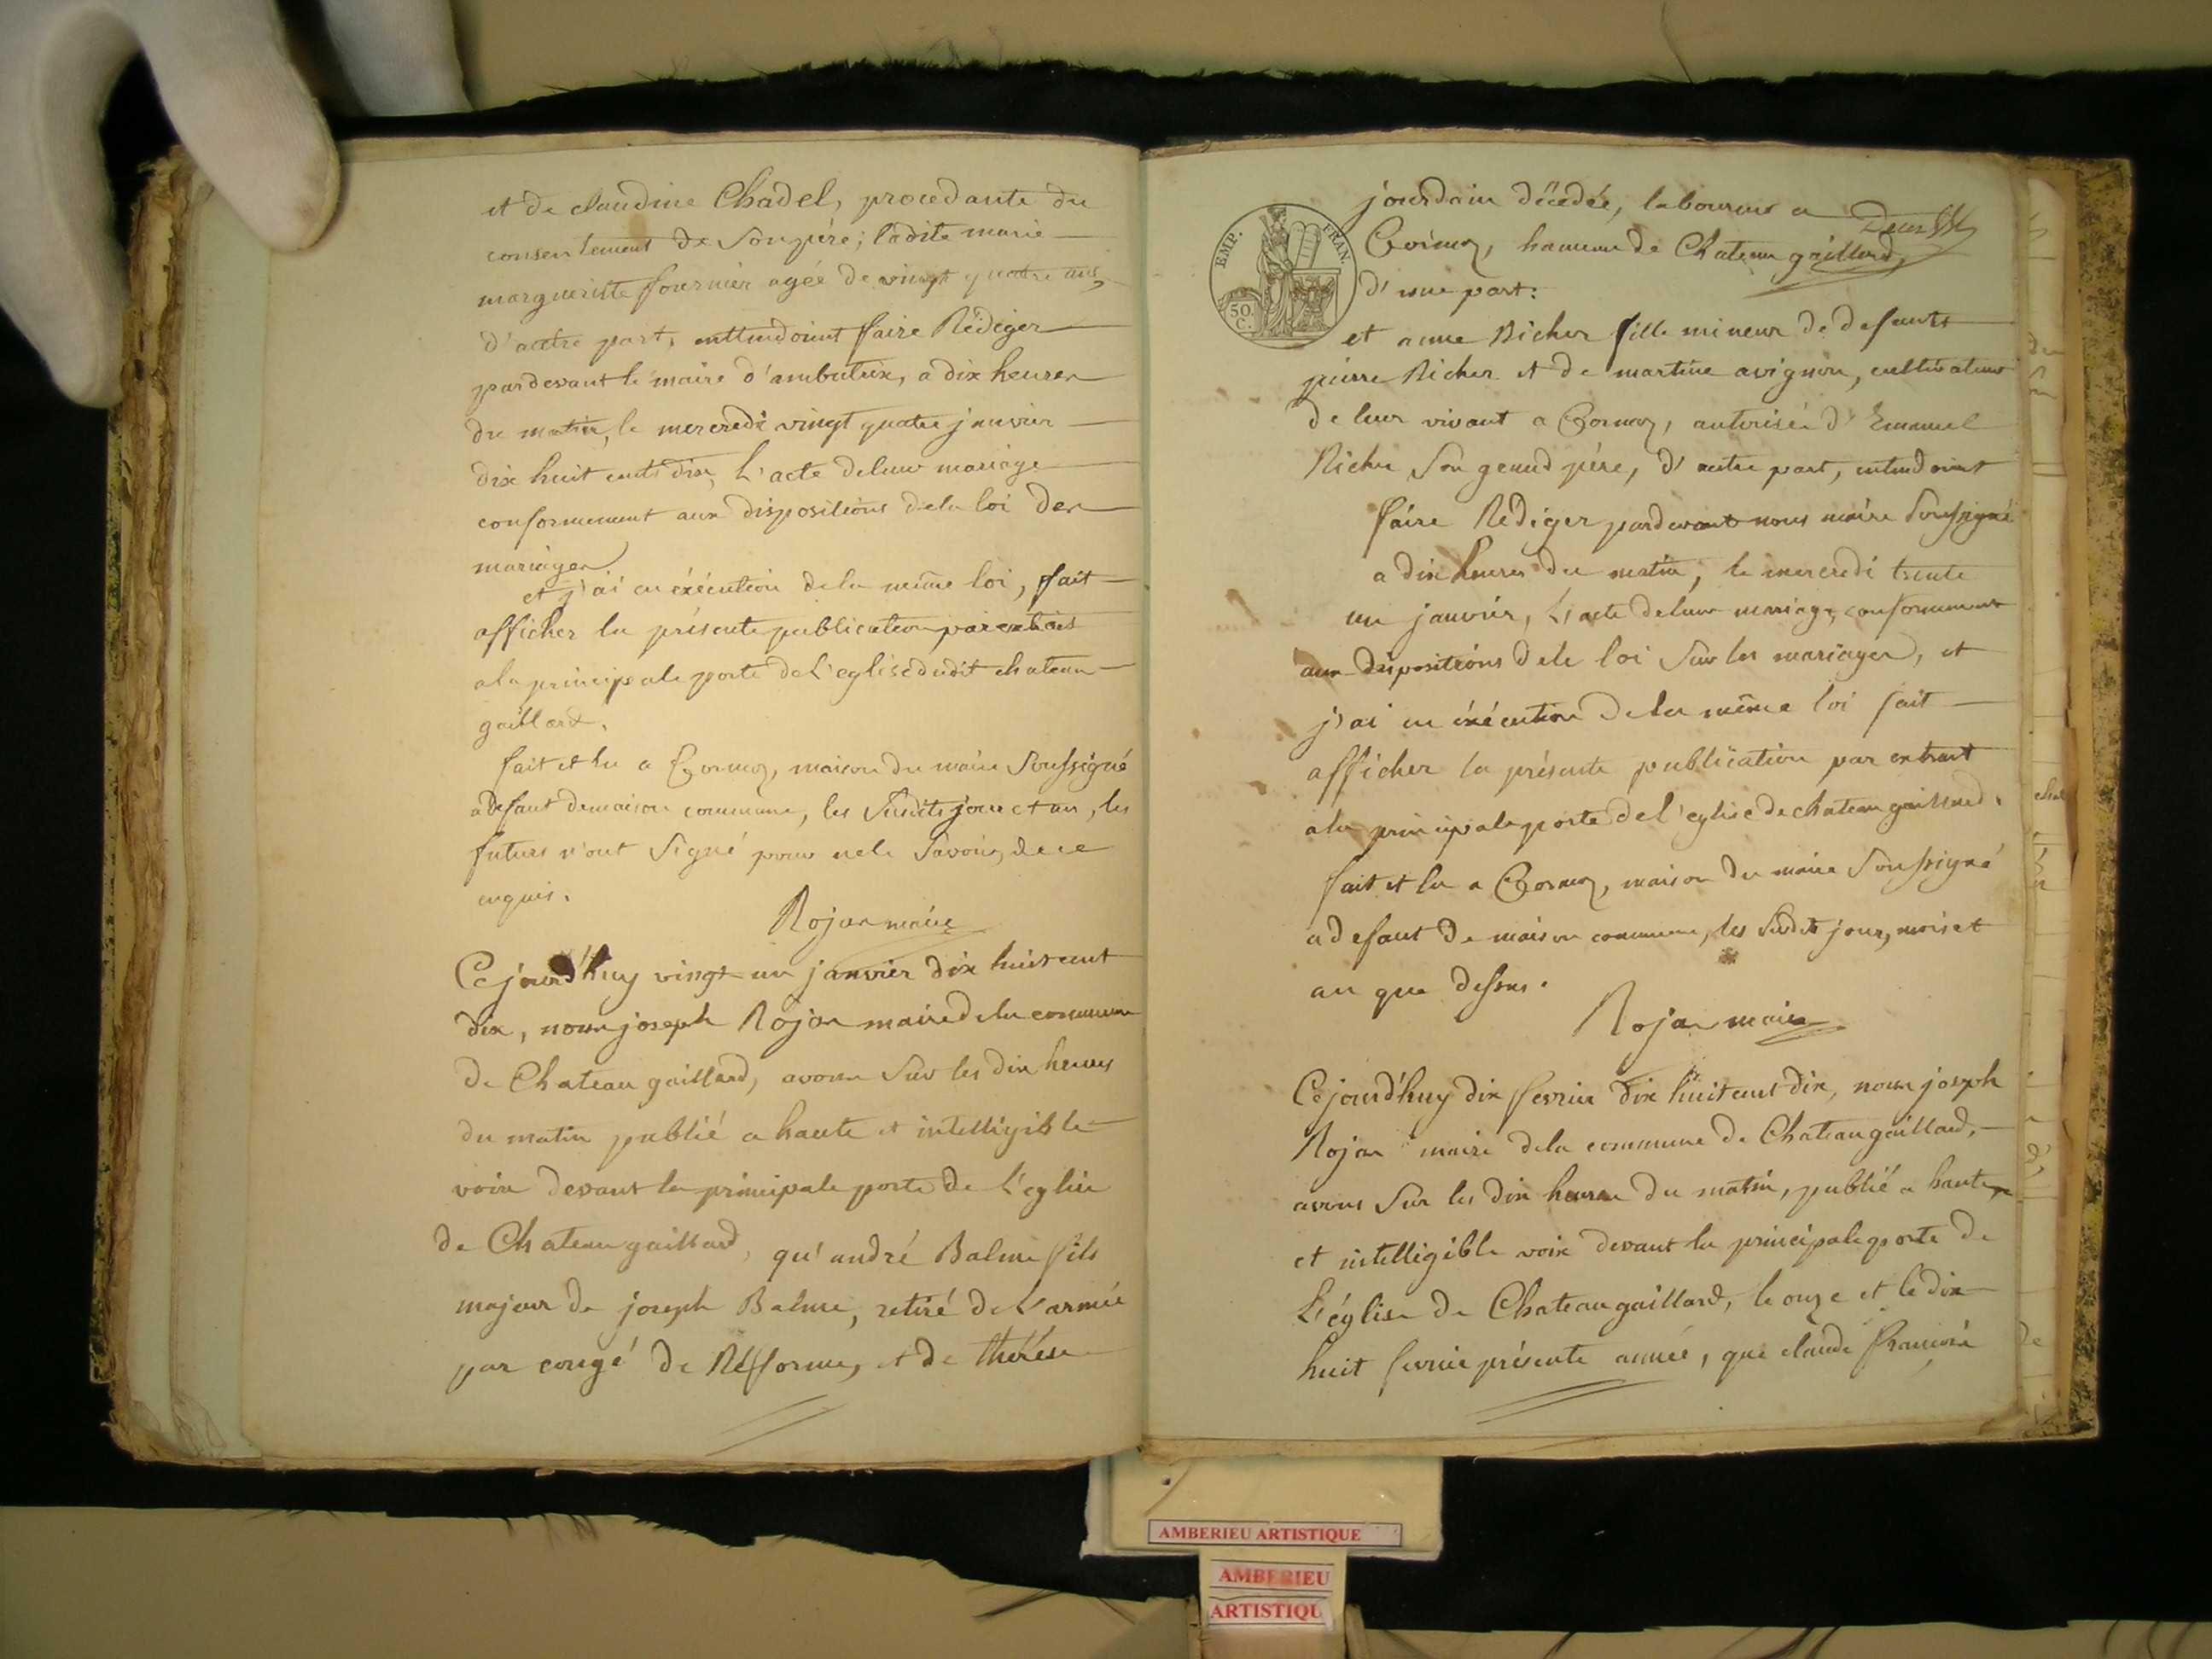 et de claudine Chadel, procedante du
consentement de son pére; ladite marie
margueritte fournier agée de vingt quatre ans,
d'autre part, enttendoint faire Rédiger
pardevant le maire d'ambutrix, a dix heures
du matin, le mercredi vingt quatre janvier
dix huit cents dix, L'acte deleur mariage
conformement aux dispositions dela loi des
mariages
et j'ai en éxécution dela même loi, fait
afficher la présente publication par extrait
ala principale porte de L'eglise dudit chateau
gaillard.
fait et lu a Cormoz, maison du maire Soussigné
adefaut demaison commune, les Susdits jour et an, les
futurs n'ont Signé pour nele Savoir, de ce
enquis.
Rojon maire
Cejourd'huy vingt un janvier dix huit cent
dix, nous joseph Rojon maire dela commune
de Chateau gaillard, avons Sur les dix heures
du matin publié a haute et intelligible
voix devant la principale porte de L'eglise
de Chateau gaillard, qu'andré Balme fils
majeur de joseph Balme, retiré de L'armée
par congé de Réfforme, et de thérèse
EMP. FRAN.
50. C.
jourdain décedée, laboureur a
Cormoz, hameau de Chateau gaillard,
d'une part:
et anne Richer fille mineur de defunts
pierre Richer et de martine avignon, cultivateurs
de leur vivant a Cormoz, autorisée d'Emanuel
Richer Son grand pére, d'autre part, entendoint
faire Rédiger pardevant nous maire Soussigné
a dix heures du matin, le mercredi trente
un janvier, L'acte deleur mariage, conformement
aux dispositions dela loi Sur les mariages, et
j'ai en éxécution dela même loi fait
afficher la présente publication par extrait
ala principale porte de l'eglise de chateau gaillard.
fait et lu a Cormoz, maison du maire Soussigné
adefaut de maison commune, les Susdits jour, mois et
an que dessus.
Rojon maire
Cejourd'huy dix fevrier dix huit cent dix, nous joseph
Rojon maire dela commune de Chateaugaillard,
avons Sur les dix heures du matin, publié a haute
et intelligible voix devant la principale porte de
L'église de Chateaugaillard, le onze et le dix
huit fevrier présente année, que claude
AMBERIEU ARTISTIQUE
AMBERIEU
ARTISTIQU